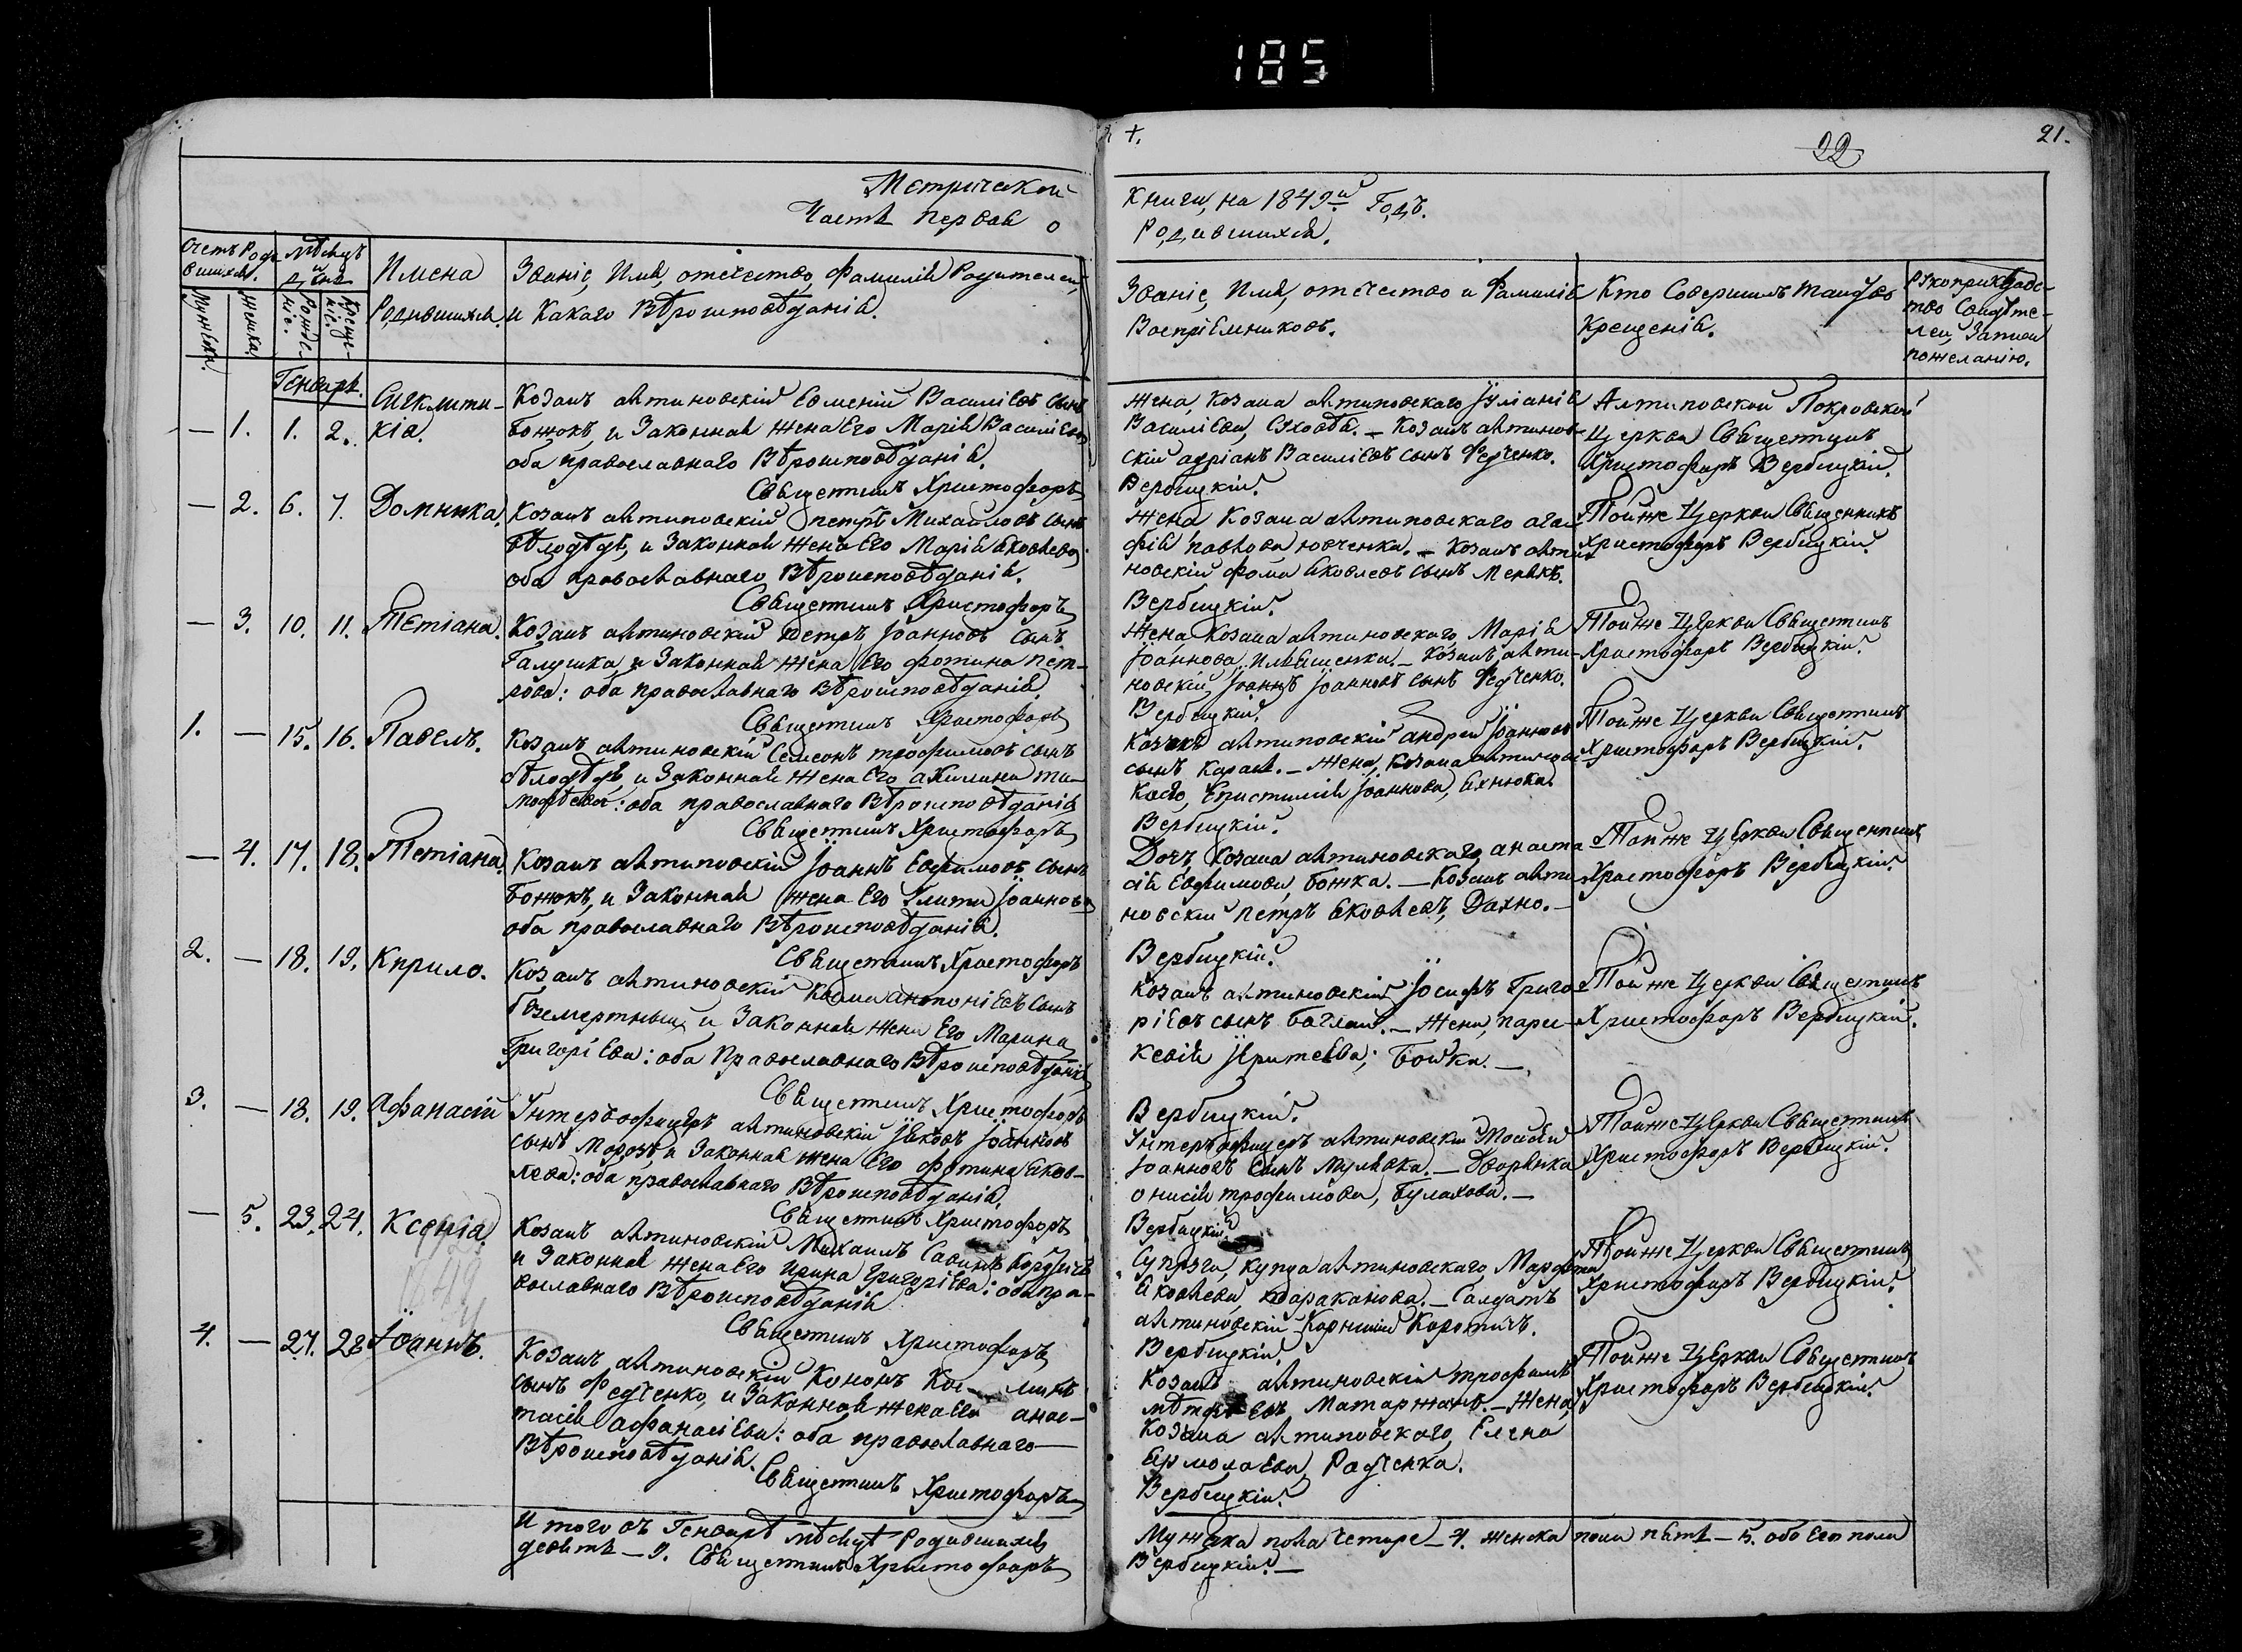 185
22
21.
Метрической
Часть первая о
Книги, на 1849й Годъ.
Родившихся.
Счетъ Роди-
вшихся.
Мѣсяцъ
и
день
Имена
Родившихся.
Званіе, Имя, отечество, Фамилія Родителей,
и Какаго Вѣроисповѣданія.
Званіе, Имя, отечество и Фамилія
Воспріемниковъ.
Кто Совершилъ таинство
Крещенія.
Рукоприкладс-
тво Свидѣте-
лей Записи
пожеланію.
Мужска.
Женска.
Рожде-
ніе.
Креще-
ніе.
Генварь.
— 1. 1. 2. Сигклити-
кіа.
Козакъ Антиповскій Евменій Василіевъ сынъ
Божокъ, и Законная жена Его Марія Василіева
оба православнаго Вѣроисповѣданія.
Священникъ Христофоръ
Жена, Козака антиповскаго Іуліанія
Василіева, Сяховба. — Козакъ антипов-
скій адріанъ Василіевъ сынъ Федченко.
Вербицкій.
Антиповской Покровской
Церкви Священникъ
Христофоръ Вербицкій.
— 2. 6. 7. Домникa.
Козакъ антиповскій петръ Михайловъ сынъ
бѣлодѣдъ, и Законная жена Его Марія Яковлева
оба православнаго Вѣроисповѣданія.
Священникъ Христофоръ
Жена Козака антиповскаго ага-
фія павлова ювченка. — Козакъ анти-
повскій фома Яковлевъ сынъ
Вербицкій.
Тойже Церкви Священникъ
Христофоръ Вербицкій.
— 3. 10. 11. Тетіана.
Козакъ антиповскій петръ Іоанновъ сынъ
Галушка, и Законная жена Его фотина пет-
рова: оба православнаго Вѣроисповѣданія.
Священникъ Христофоръ
Жена, Козака антиповскаго Марія
Іоаннова, Ильяшенка. — Козакъ анти-
повскій, Іоаннъ Іоанновъ сынъ Федченко.
Вербицкій.
Тойже Церкви Священникъ
Христофоръ Вербицкій.
1. — 15. 16. Павелъ.
Козакъ антиповскій Семеонъ трофимовъ сынъ
бѣлодѣдъ, и Законная жена Его акилина ти-
мофѣева: оба православнаго Вѣроисповѣданія
Священникъ Христофоръ
Козакъ антиповскій андрей Іоанновъ
сынъ Карась. — Жена, Козака антипов-
каго, Епистимія Іоаннова, Яхнюка.
Вербицкій.
Тойже Церкви Священникъ
Христофоръ Вербицкій.
— 4. 17. 18. Тетіана.
Козакъ антиповскій Іоаннъ Евфимовъ сынъ
Божокъ, и Законная Жена Его Улита Іоаннова
оба православнаго Вѣроисповѣданія.
Священникъ Христофоръ
Дочъ Козака антиповскаго, анаста-
сія Евфимова, Божка. — Козакъ анти-
повскій петръ Яковлевъ, Дахно. —
Вербицкій.
Тойже Церкви Священникъ
Христофоръ Вербицкій.
2. — 18. 19. Кирило.
Козакъ антиповскій Косма антоніевъ сынъ
безсмертный, и Законная жена Его Марина
Григоріева: оба Православнаго Вѣроисповѣданія
Священникъ Христофоръ
Козакъ антиповскій Іосифъ Григо-
ріевъ сынъ Баглай. — Жена, пара-
кевія Бойка. —
Вербицкій.
Тойже Церкви Священникъ
Христофоръ Вербицкій.
3. — 18. 19. Афанасій
Унтеръофицеръ антиповскій Іяковъ Іоанновъ
сынъ Морозъ, и Законная жена Его фотина Яков-
лева: оба православнаго Вѣроисповѣданія.
Священникъ Христофоръ
Унтеръофицеръ антиповскій Моисей
Іоанновъ сынъ Мулявка. — Дворянка
онисія трофимова, Булахова. —
Вербицкій.
Тойже Церкви Священникъ
Христофоръ Вербицкій.
— 5. 23. 24. Ксенія.
Козакъ антиповскій Михаилъ Савинъ
и Законная жена Его ирина Григоріева: оба пра-
вославнаго Вѣроисповѣданія
Священникъ Христофоръ
Супруга, купца антиповскаго Марфа
Яковлева, тараканова. — Салдатъ
антиповскій Корнилій Коротичъ.
Вербицкій.
Тойже Церкви Священникъ
Христофоръ Вербицкій.
4. — 27. 28 Іоаннъ.
Козакъ антиповскій Кононъ
сынъ Федченко, и Законная жена Его анас-
тасія афанасіева: оба православнаго —
Вѣроисповѣданія.
Священникъ Христофоръ
Козакъ антиповскій трофимъ
Матаржанъ. — Жена,
Козака антиповскаго, Елена
Ермолаева, Радченка.
Вербицкій.
Тойже Церкви Священникъ
Христофоръ Вербицкій.
Итого въ Генварѣ мѣсяцѣ Родившихся Мужска пола Четыре — 4. женска пола пять — 5. обоего пола
девять — 9. Священникъ Христофоръ Вербицкій. —